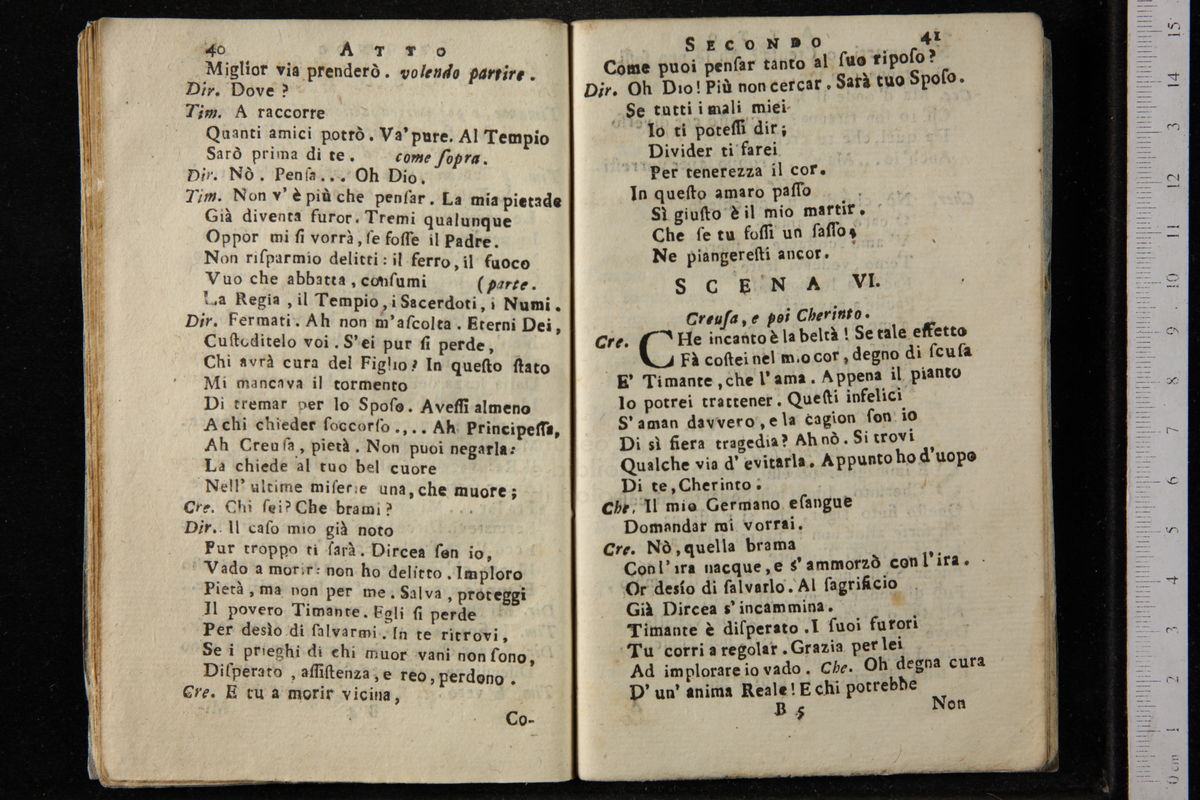 40 ATTO
Miglior via prenderò. volendo partire.
Dir. Dove?
Tim. A raccorre
Quanti amici potrò. Va' pure. Al Tempio
Sarò prima di te. come ſopra.
Dir. Nò. Penſa... Oh Dio.
Tim. Non v' è più che penſar. La mia pietade
Già diventa furor. Tremi qualunque
Oppor mi ſi vorrà, ſe foſſe il Padre.
Non riſparmio delitti: il ferro, il fuoco
Vuo che abbatta, conſumi (parte.
La Regia, il Tempio, i Sacerdoti, i Numi.
Dir. Fermati. Ah non m'aſcolta. Eterni Dei,
Cuſtoditelo voi. S'ei pur ſi perde,
Chi avrà cura del Figlio? In queſto ſtato
Mi mancava il tormento
Di tremar per lo Spoſo. Aveſſi almeno
A chi chieder ſoccorſo.... Ah Principeſſa,
Ah Creuſa, pietà. Non puoi negarla:
La chiede al tuo bel cuore
Nell' ultime miſerie una, che muore;
Cre. Chi ſei? Che brami?
Dir. Il caſo mio già noto
Pur troppo ti ſarà. Dircea ſon io,
Vado a morir: non ho delitto. Imploro
Pietà, ma non per me. Salva, proteggi
Il povero Timante. Egli ſi perde
Per desìo di ſalvarmi. In te ritrovi,
Se i prieghi di chi muor vani non ſono,
Diſperato, aſſiſtenza, e reo, perdono.
Cre. E tu a morir vicina,
Co-
SECONDO 41
Come puoi penſar tanto al ſuo ripoſo?
Dir. Oh Dio! Più non cercar. Sarà tuo Spoſo.
Se tutti i mali miei
Io ti poteſſi dir;
Divider ti farei
Per tenerezza il cor.
In queſto amaro paſſo
Sì giuſto è il mio martir.
Che ſe tu foſſi un ſaſſo,
Ne piangereſti ancor.
SCENA VI.
Creuſa, e poi Cherinto.
Cre. CHe incanto è la beltà! Se tale effetto
Fà coſtei nel mio cor, degno di ſcuſa
E' Timante, che l'ama. Appena il pianto
Io potrei trattener. Queſti infelici
S'aman davvero, e la cagion ſon io
Di sì fiera tragedia? Ah nò. Si trovi
Qualche via d' evitarla. Appunto ho d'uopo
Di te, Cherinto.
Che. Il mio Germano eſangue
Domandar mi vorrai.
Cre. Nò, quella brama
Con l'ira nacque, e s'ammorzò con l'ira.
Or desío di ſalvarlo. Al ſagrificio
Già Dircea s'incammina.
Timante è diſperato. I ſuoi furori
Tu corri a regolar. Grazia per lei
Ad implorare io vado. Che. Oh degna cura
D' un' anima Reale! E chi potrebbe
B 5 Non
15
14
13
12
11
10
9
8
7
6
5
4
3
2
1
0 cm